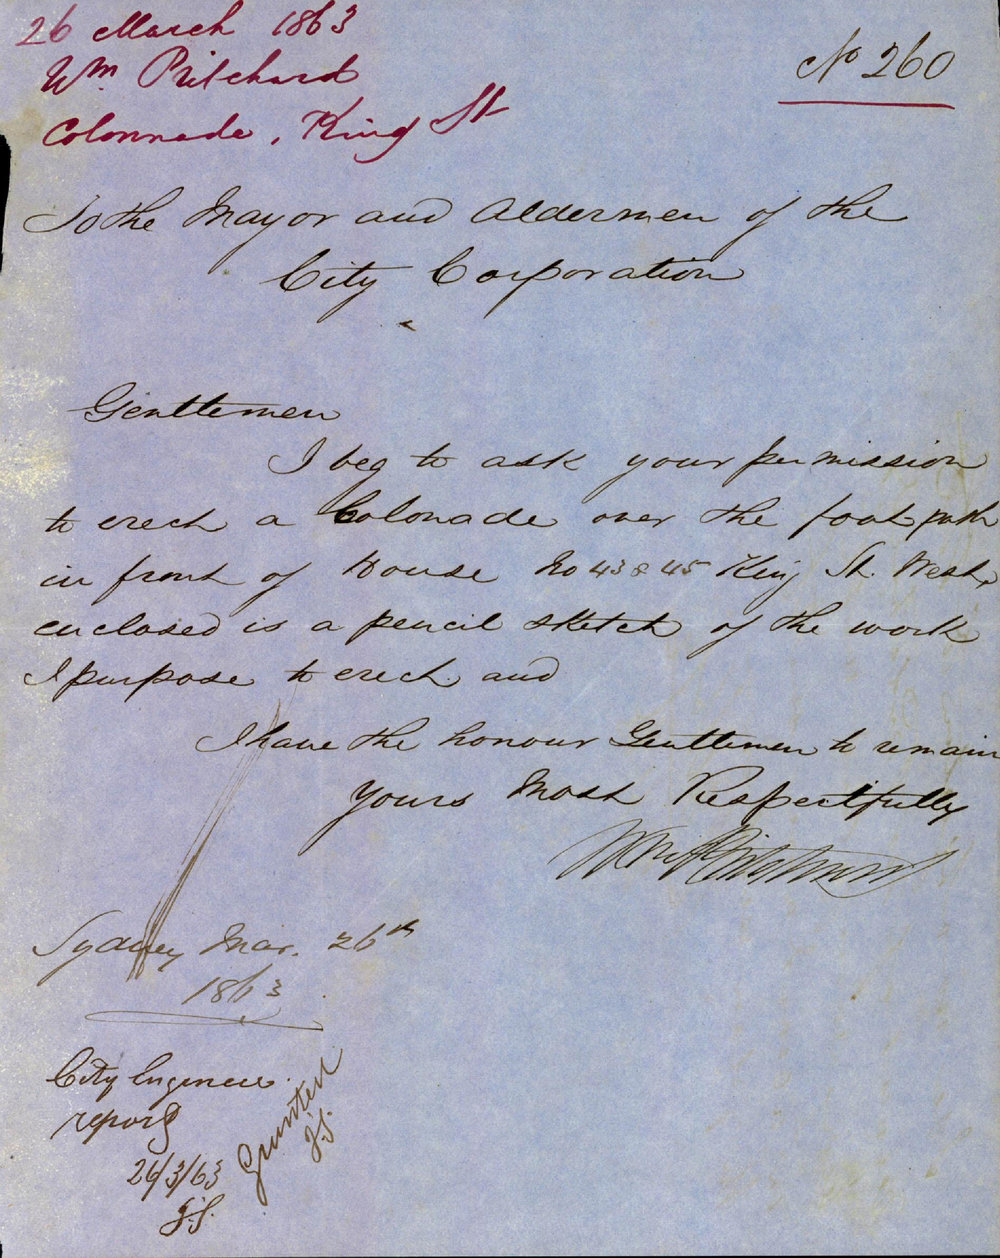 26 March 1863
Wm. Pritchard
Colonnade, King St
No 260
To the Mayor and Aldermen of the
City Corporation
Gentlemen
I beg to ask your permission
to erect a Colonade over the foot path
in front of House No 43 & 45 King St. West,
enclosed is a pencil sketch of the work
I purpose to erect and
I have the honour Gentlemen to remain
Yours Most Respectfully
Wm Pritchard
Sydney Mar. 26th
1863
City Engineer
report
26/3/63
J.S.
Granted
J.S.